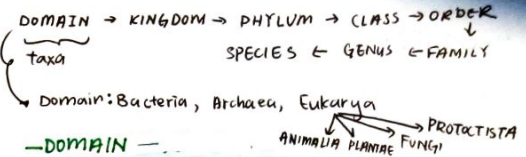 DOMAIN → KINGDOM → PHYLUM → CLASS → ORDER
taxa SPECIES ← GENUS ← FAMILY
Domain: Bacteria, Archaea, Eukarya
ANIMALIA PLANTAE FUNGI PROTOCTISTA
—DOMAIN—